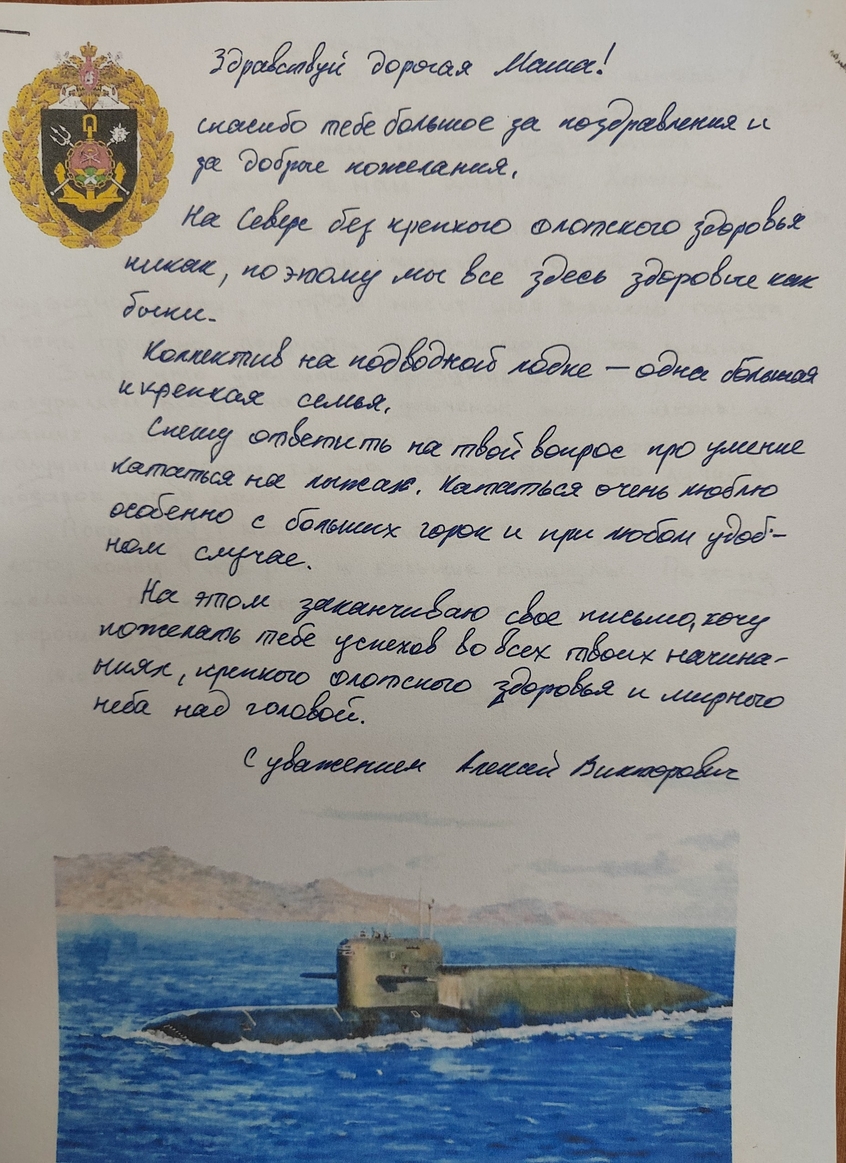 Здравствуй дорогая Маша!
спасибо тебе большое за поздравления и
за добрые пожелания.
На Севере без крепкого флотского здоровья
никак, поэтому мы все здесь здоровые как
быки.
Коллектив на подводной лодке – одна большая
и крепкая семья.
Спешу ответить на твой вопрос про умение
кататься на лыжах. Кататься очень люблю
особенно с больших горок и при любом удоб-
ном случае.
На этом заканчиваю свое письмо, хочу
пожелать тебе успехов во всех твоих начина-
ниях, крепкого флотского здоровья и мирного
неба над головой.
С уважением Алексей Викторович